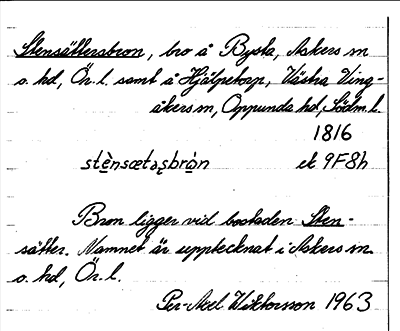 Stensättersbron, bro å Bysta, Askers sn
o. hd, Ör. l. samt å Hjälpetorp, Västra Ving-
åkers sn, Oppunda hd, Södm. l.
1816
stènsætaʂbròn ek 9F8h
Bron ligger vid bostaden Sten-
sätter. Namnet är upptecknat i Askers sn.
o. hd, Ör. l.
Per-Axel Wiktorsson 1963